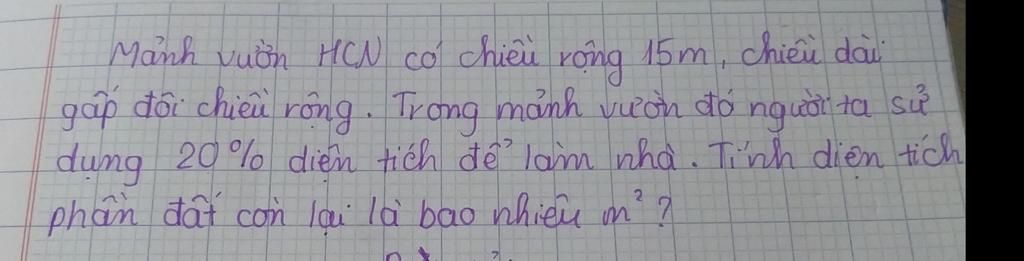 Mảnh vườn HCN có chiều rộng 15m, chiều dài
gấp đôi chiều rộng. Trong mảnh vườn đó người ta sử
dụng 20% diện tích để làm nhà. Tính diện tích
phần đất còn lại là bao nhiêu m²?